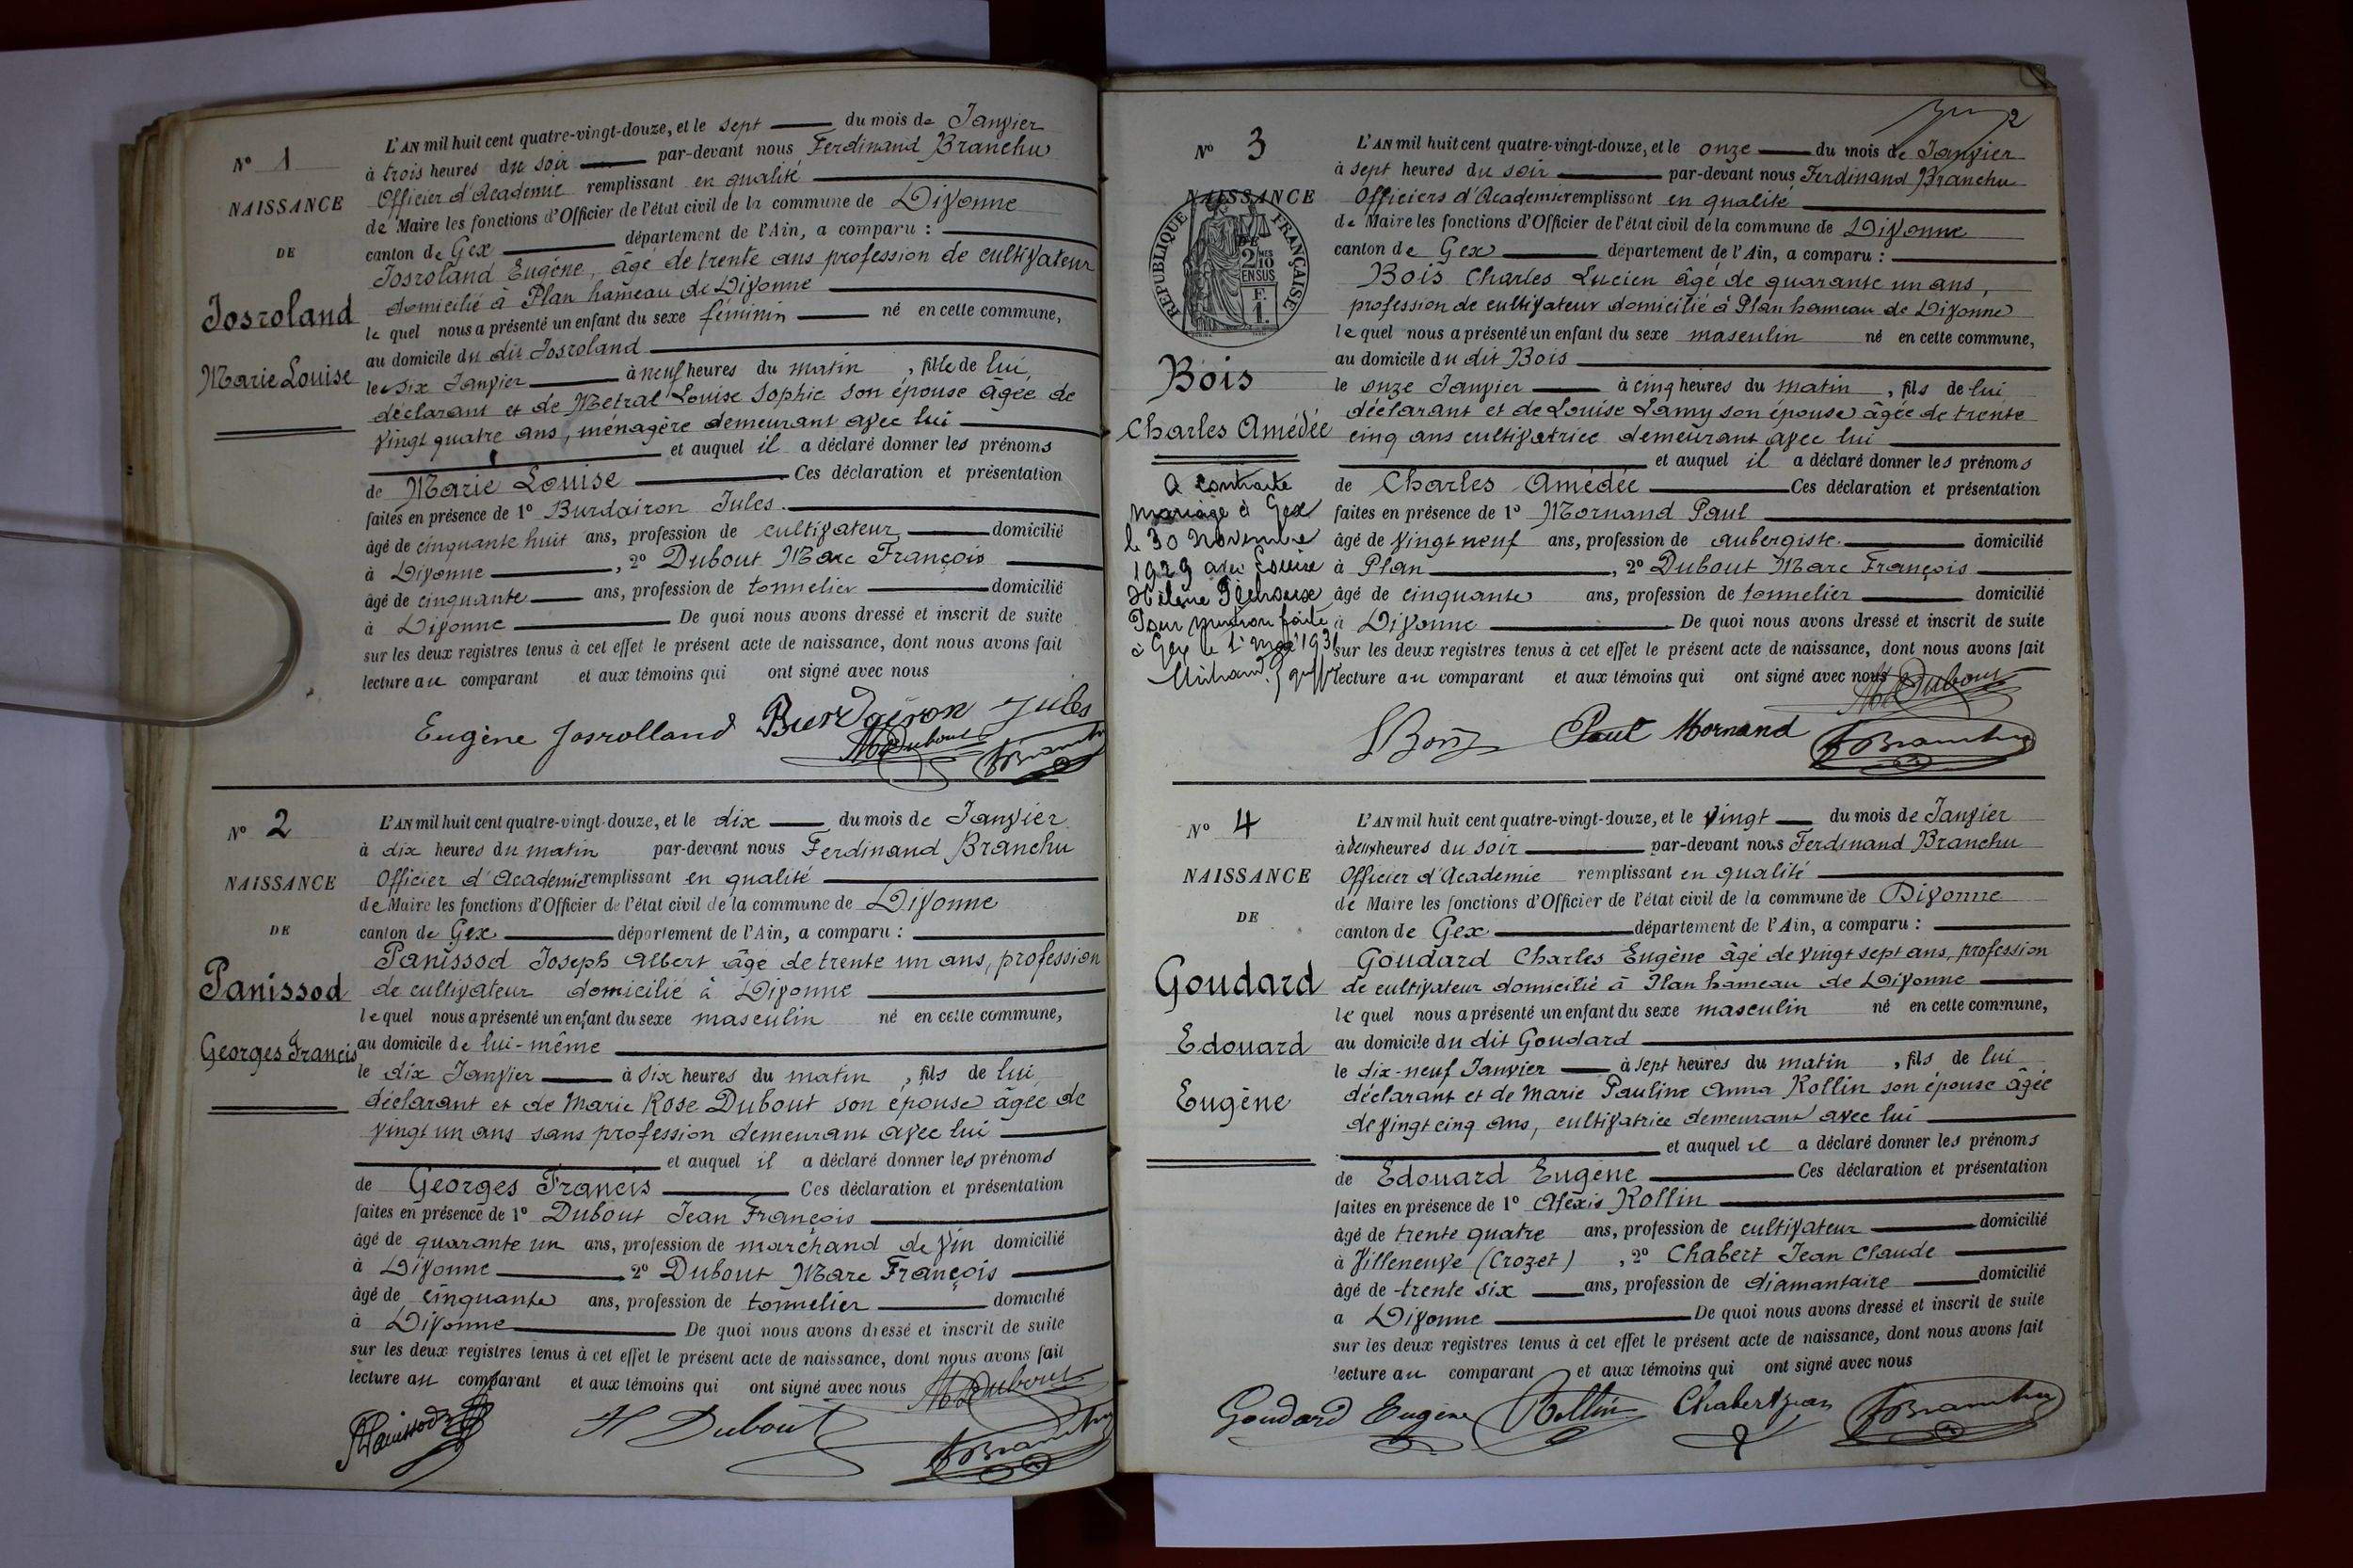 Nº 1
NAISSANCE
DE
Josroland
Marie Louise
L'AN mil huit cent quatre-vingt-douze, et le sept du mois de Janvier
à trois heures du soir par-devant nous Ferdinand Branchu
Officier d'Academie remplissant en qualité
de Maire les fonctions d'Officier de l'état civil de la commune de Divonne
canton de Gex département de l'Ain, a comparu :
Josroland Eugène, âgé de trente ans profession de cultivateur
domicilié à Plan hameau de Divonne
le quel nous a présenté un enfant du sexe féminin né en cette commune,
au domicile du dit Josroland
le six Janvier à neuf heures du matin , fille de lui
déclarant et de Métral Louise Sophie son épouse âgée de
vingt quatre ans, ménagère demeurant avec lui
et auquel il a déclaré donner les prénoms
de Marie Louise Ces déclaration et présentation
faites en présence de 1º Burdairon Jules
âgé de cinquante huit ans, profession de cultivateur domicilié
à Divonne , 2º Dubout Marc François
âgé de cinquante ans, profession de tonnelier domicilié
à Divonne De quoi nous avons dressé et inscrit de suite
sur les deux registres tenus à cet effet le présent acte de naissance, dont nous avons fait
lecture au comparant et aux témoins qui ont signé avec nous
Eugène Josrolland Burdairon Jules
M Dubout
F Branchu
Nº 2
NAISSANCE
DE
Panissod
Georges Francis
L'AN mil huit cent quatre-vingt-douze, et le dix du mois de Janvier
à dix heures du matin par-devant nous Ferdinand Branchu
Officier d'Academie remplissant en qualité
de Maire les fonctions d'Officier de l'état civil de la commune de Divonne
canton de Gex département de l'Ain, a comparu :
Panissod Joseph Albert âgé de trente un ans, profession
de cultivateur domicilié à Divonne
le quel nous a présenté un enfant du sexe masculin né en cette commune,
au domicile de lui-même
le dix Janvier à six heures du matin , fils de lui
déclarant et de Marie Rose Dubout son épouse âgée de
vingt un ans sans profession demeurant avec lui
et auquel il a déclaré donner les prénoms
de Georges Francis Ces déclaration et présentation
faites en présence de 1º Dubout Jean François
âgé de quarante un ans, profession de marchand de vin domicilié
à Divonne 2º Dubout Marc François
âgé de cinquante ans, profession de tonnelier domicilié
à Divonne De quoi nous avons dressé et inscrit de suite
sur les deux registres tenus à cet effet le présent acte de naissance, dont nous avons fait
lecture au comparant et aux témoins qui ont signé avec nous
M Dubout
Panissod Dubout
F Branchu
2
Nº 3
NAISSANCE
DE
RÉPUBLIQUE FRANÇAISE
2 MES 10 EN SUS
F. 1.
Bois
Charles Amédée
A contracté
mariage à Gex
le 30 novembre
1929 avec Louise
Hélène
Pour mention faite
à Gex le 1931
L'AN mil huit cent quatre-vingt-douze, et le onze du mois de Janvier
à sept heures du soir par-devant nous Ferdinand Branchu
Officiers d'Academie remplissant en qualité
de Maire les fonctions d'Officier de l'état civil de la commune de Divonne
canton de Gex département de l'Ain, a comparu :
Bois Charles Lucien âgé de quarante un ans,
profession de cultivateur domicilié à Plan hameau de Divonne
le quel nous a présenté un enfant du sexe masculin né en cette commune,
au domicile du dit Bois
le onze Janvier à cinq heures du matin , fils de lui
déclarant et de Louise Lamy son épouse âgée de trente
cinq ans cultivatrice demeurant avec lui
et auquel il a déclaré donner les prénoms
de Charles Amédée Ces déclaration et présentation
faites en présence de 1º Mornand Paul
âgé de vingt neuf ans, profession de aubergiste domicilié
à Plan , 2º Dubout Marc François
âgé de cinquante ans, profession de tonnelier domicilié
à Divonne De quoi nous avons dressé et inscrit de suite
sur les deux registres tenus à cet effet le présent acte de naissance, dont nous avons fait
lecture au comparant et aux témoins qui ont signé avec nous
M Dubout
Bois Paul Mornand F Branchu
Nº 4
NAISSANCE
DE
Goudard
Edouard
Eugène
L'AN mil huit cent quatre-vingt-douze, et le vingt du mois de Janvier
à deux heures du soir par-devant nous Ferdinand Branchu
Officier d'Academie remplissant en qualité
de Maire les fonctions d'Officier de l'état civil de la commune de Divonne
canton de Gex département de l'Ain, a comparu :
Goudard Charles Eugène âgé de vingt sept ans, profession
de cultivateur domicilié à Plan hameau de Divonne
le quel nous a présenté un enfant du sexe masculin né en cette commune,
au domicile du dit Goudard
le dix-neuf Janvier à sept heures du matin , fils de lui
déclarant et de Marie Pauline Anna Rollin son épouse âgée
de vingt cinq ans, cultivatrice demeurant avec lui
et auquel il a déclaré donner les prénoms
de Edouard Eugène Ces déclaration et présentation
faites en présence de 1º Alexis Rollin
âgé de trente quatre ans, profession de cultivateur domicilié
à Villeneuve (Crozet) , 2º Chabert Jean Claude
âgé de trente six ans, profession de diamantaire domicilié
a Divonne De quoi nous avons dressé et inscrit de suite
sur les deux registres tenus à cet effet le présent acte de naissance, dont nous avons fait
lecture au comparant et aux témoins qui ont signé avec nous
Goudard Eugène Rollin Chabert Jean F Branchu